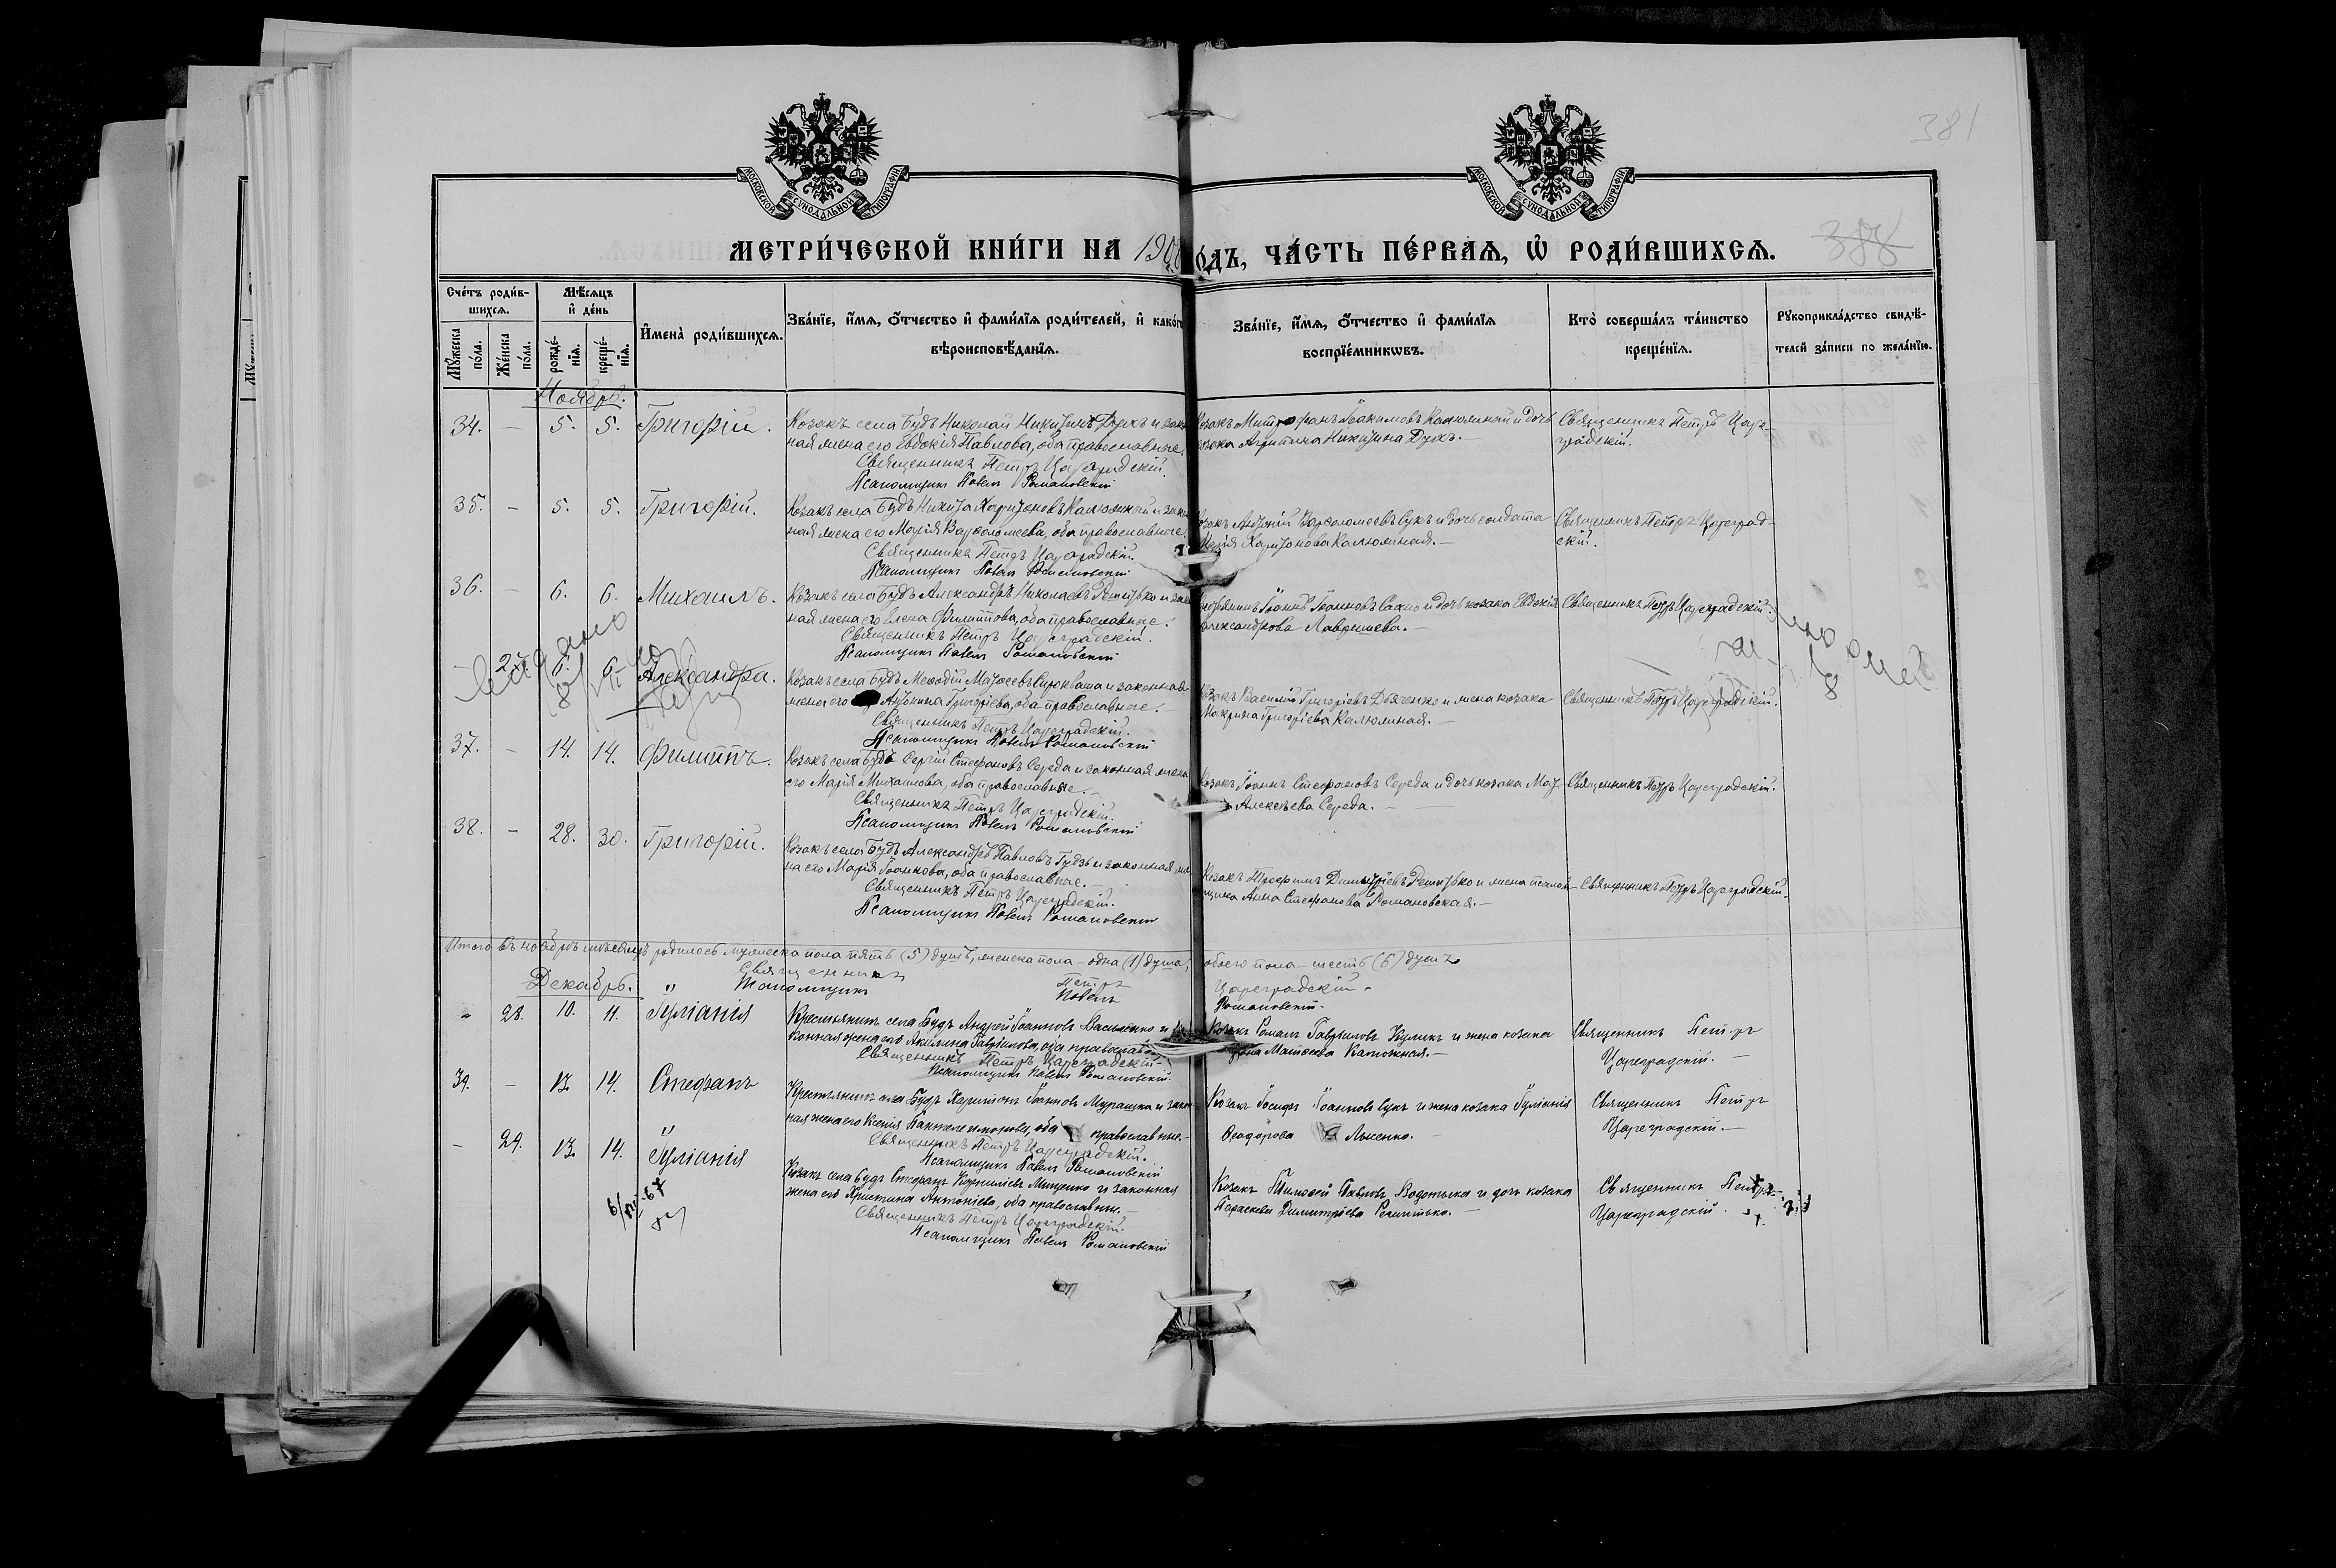 381
388
МОСКОВСКОЙ СѴНОДАЛЬНОЙ ТИПОГРАФІИ
МОСКОВСКОЙ СѴНОДАЛЬНОЙ ТИПОГРАФІИ
МЕТРИ́ЧЕСКОЙ КНИ́ГИ НА 190 о́дъ, ЧА́СТЬ ПЕ́РВАѦ, Ѡ҆ РОДИ́ВШИХСѦ.
Сче́тъ роди́в-
шихсѧ.
Мѣ́сѧцъ
и҆ де́нь
Мꙋ́жеска
по́ла.
Же́нска
по́ла.
рожде́-
нїѧ.
креще́-
нїѧ.
И҆мена̀ роди́вшихсѧ.
Зва́нїе, и҆́мѧ, ѻ҆́тчество и҆ фами́лїѧ роди́телей, и҆ како́гѡ
вѣроисповѣ́данїѧ.
Зва́нїе, и҆́мѧ, ѻ҆́тчество и҆ фами́лїѧ
воспрїе́мникѡвъ.
Кто̀ соверша́лъ та́инство
креще́нїѧ.
Рꙋкоприкла́дство свидѣ́-
телей за́писи по жела́нїю.
Ноябрь.
34. — 5. 5. Григорій. Козакъ села Будъ Николай Никитинъ Духъ и закон
ная жена его Евдокія Павлова, оба православные.
Священникъ Петръ Цареградскій.
Псаломщикъ Павелъ Романовскій
Козакъ Митрофанъ Іоакимовъ Калюжный и дочь
козака Никитина Духъ. —
Священникъ Петръ Царе-
градскій.
35. — 5. 5. Григорій. Козакъ села Будъ Никита Харитоновъ Калюжный и закон
ная жена его Марія Варѳоломеева, оба православные.
Священникъ Петръ Цареградскій.
Псаломщикъ Павелъ Романовскій
Козакъ Антоній Варѳоломеевъ Сукъ и дочь солдата
Марія Харитонова Калюжная. —
Священникъ Петръ Цареград-
скій.
36. — 6. 6. Михаилъ. Козакъ села Будъ Александръ Николаевъ Решитько и закон
ная жена его Елена Филиппова, оба православные.
Священникъ Петръ Цареградскій.
Псаломщикъ Павелъ Романовскій
Іоаннъ Іоанновъ и дочь козака Евдокія
Александрова —
Священникъ Петръ Цареградскій.
— 27. 6. 6. Александра. Козакъ села Будъ Меѳодій Матѳеевъ Сироквашa и законная
жена его Антонина Григоріева, оба православные.
Священникъ Петръ Цареградскій.
Псаломщикъ Павелъ Романовскій
Козакъ Василій Григоріевъ Дьяченко и жена козака
Макрина Григоріева Калюжная. —
Священникъ Петръ Цареградскій.
37. — 14. 14. Филиппъ. Козакъ села Будъ Сергій Стефановъ Середа и законная жена
его Марія Михаилова, оба православные. —
Священникъ Петръ Цареградскій.
Псаломщикъ Павелъ Романовскій
Козакъ Іоаннъ Стефановъ Середа и дочь козака
Алексѣева Середа. —
Священникъ Петръ Цареградскій.
38. — 28. 30. Григорій. Козакъ села Будъ Александръ Павловъ Гудзь и законная же
на его Марія Іоаннова, оба православные. —
Священникъ Петръ Цареградскій.
Псаломщикъ Павелъ Романовскій
Козакъ Трофимъ Димитріевъ Решитько и жена псалом-
щика Анна Стефанова Романовская. —
Священникъ Петръ Цареградскій.
Итого въ ноябрѣ мѣсяцѣ родилось мужеска пола пять (5) душъ, женска пола — одна (1) душа, обоего пола — шесть (6) душъ
Священникъ Петръ Цареградскій.
Псаломщикъ Павелъ Романовскій.
Декабрь.
- 28. 10. 11. Іуліанія Крестьянинъ села Будъ Андрей Іоанновъ Василенко и за
конная жена его Акилина Гавріилова, оба православные
Священникъ Петръ Цареградскій.
Псаломщикъ Павелъ Романовскій.
Козакъ Романъ Гавріиловъ Куликъ и жена козака
Матѳеева —
Священникъ Петръ
Цареградскій. —
39. — 13. 14. Стефанъ Крестьянинъ села Будъ Харитонъ Іоанновъ Мурашка и закон
ная жена его Ксенія Пантелеимонова, оба православные. —
Священникъ Петръ Цареградскій.
Псаломщикъ Павелъ Романовскій
Козакъ Іосифъ Іоанновъ Сукъ и жена козака Іуліанія
Ѳеодорова —
Священникъ Петръ
Цареградскій. —
— 29. 13. 14. Іуліанія Козакъ села Будъ Стефанъ Корниліевъ Мищенко и законная
жена его Христина Антоніева, оба православные. —
Священникъ Петръ Цареградскій.
Псаломщикъ Павелъ Романовскій
Козакъ Тимоѳей Павловъ и дочь козака
Параскева Димитріева Решитько. —
Священникъ Петръ
Цареградскій.